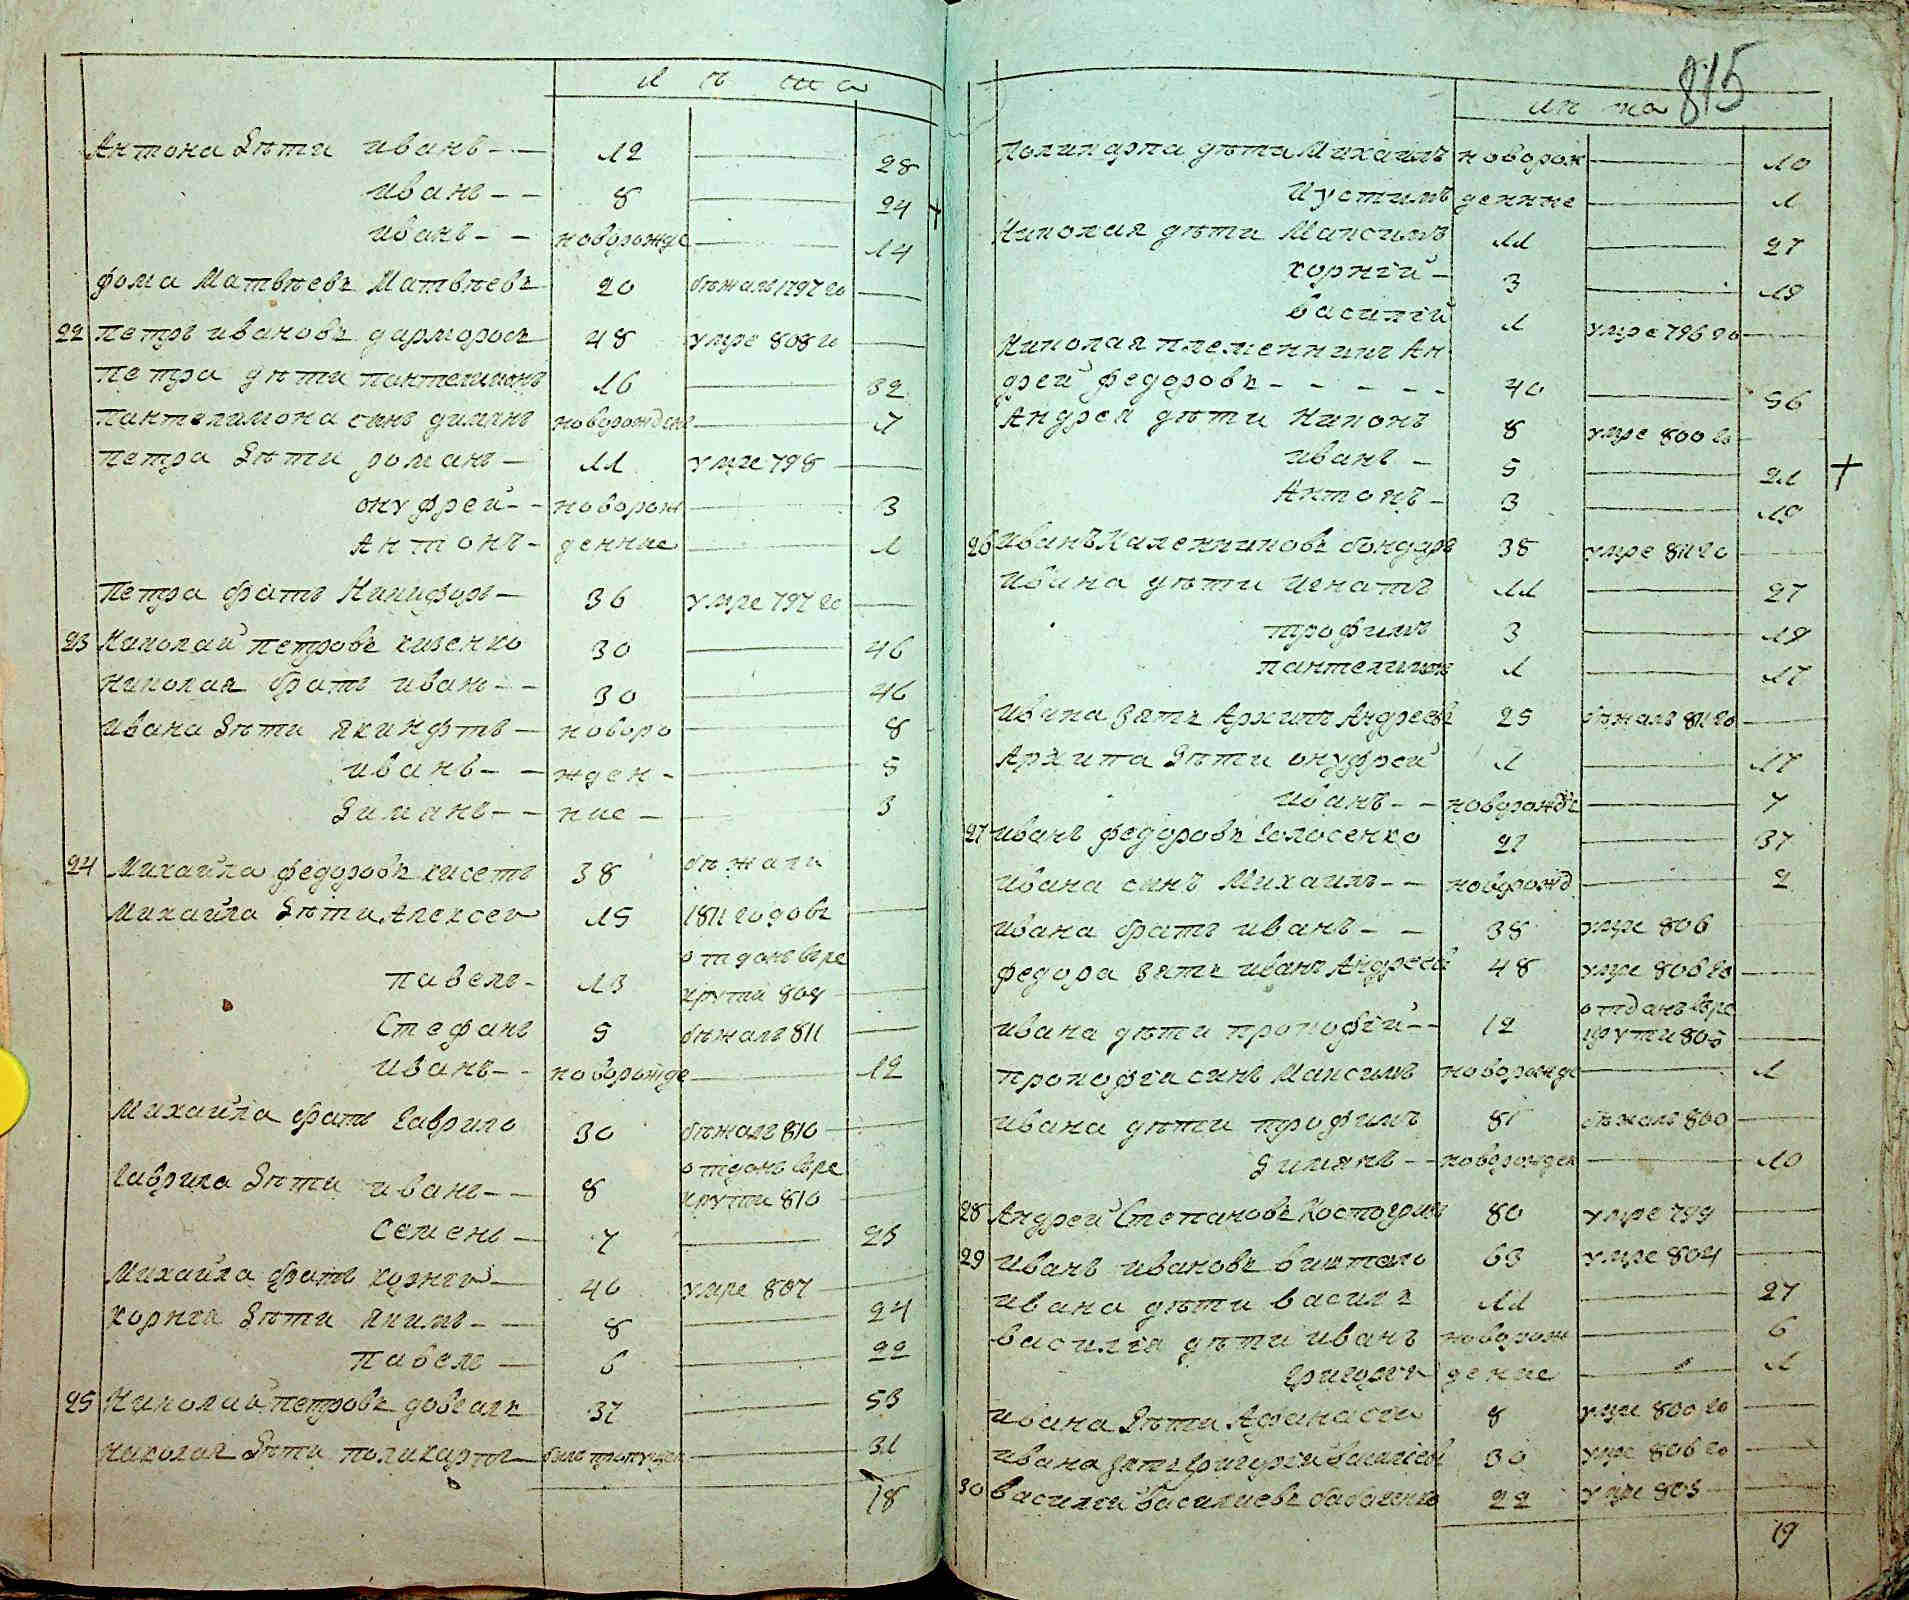 лѣта
Антона дѣти иванъ 12 28
иванъ 8 24
иванъ новорожде 14
фома Матвѣевъ Матвѣевъ 20 бѣжалъ 1797 го
22 петръ ивановъ дарморосъ 48 умре 808 го
петра дѣти пантелимонъ 16 32
пантелимона синъ димянъ новорожден 7
петра дѣти романъ 11 умре 798
онуфрей новорож 3
Антонъ денние 1
петра братъ Никифоръ 36 умре 797 го
23 Николай петровъ кизенко 30 46
николая братъ иванъ 30 46
ивана дѣти якинфтъ новоро 8
иванъ жден 5
димянъ ние 3
24 Михайла федоровъ кисеть 38 бѣжали
Михайла дѣти Алексеи 15 1811 годовъ
отданъ вре
павелъ 13 крути 808
Стефанъ 5 бѣжалъ 811
иванъ новорожде 12
Михайла братъ Гаврило 30 бѣжалъ 810
отданъ вре
Гаврила дѣти иванъ 8 крути 810
Семенъ 7 25
Михайла братъ корнги 40 умре 807
корнга дѣти якимъ 8 24
павелъ 6 22
25 Николай петровъ довгаль 37 53
николая дѣти поликарпъ билъ пропущен 31
18
815
лѣта
Поликарпа дѣти Михаилъ новорож 10
Иустимъ денние 1
Николая дѣти Максимъ 11 27
корнгй 3 19
василгй 1 умре 796 го
Николая племенникъ Ан
дрей федоровъ 40 56
Андрея дѣти Никонъ 8 умре 800 го
иванъ 5 21
Антонъ 3 19
26 иванъ Каленниковъ бондаръ 38 умре 811 го
ивана дѣти игнатъ 11 27
трофимъ 3 19
пантелимонъ 1 17
ивана зять Архипъ Андреевъ 25 бѣжалъ 811 го
Архипа дѣти онуфрей 1 17
иванъ новорожде 7
27 иванъ федоровъ Голосенко 21 37
ивана синъ Михаилъ новорожд 2
ивана братъ иванъ 38 умре 806
федора зять иванъ Андреевъ 48 умре 806 го
отданъ вре
ивана дѣти прокофгй 12 крути 805
прокофга синъ Максимъ новорожде 1
ивана дѣти трофимъ 8 бѣжалъ 800
димянъ новорожден 10
28 Андрей Степановъ Костогризъ 80 умре 799
29 иванъ ивановъ виштало 63 умре 804
ивана дѣти василь 11 27
василга дѣти иванъ новорож 6
григорги дение 1
ивана дѣти Афанасги 8 умре 800 го
ивана зять григоргй василгевъ 30 умре 806 го
30 василгй василиевъ бабаченко 22 умре 803
19